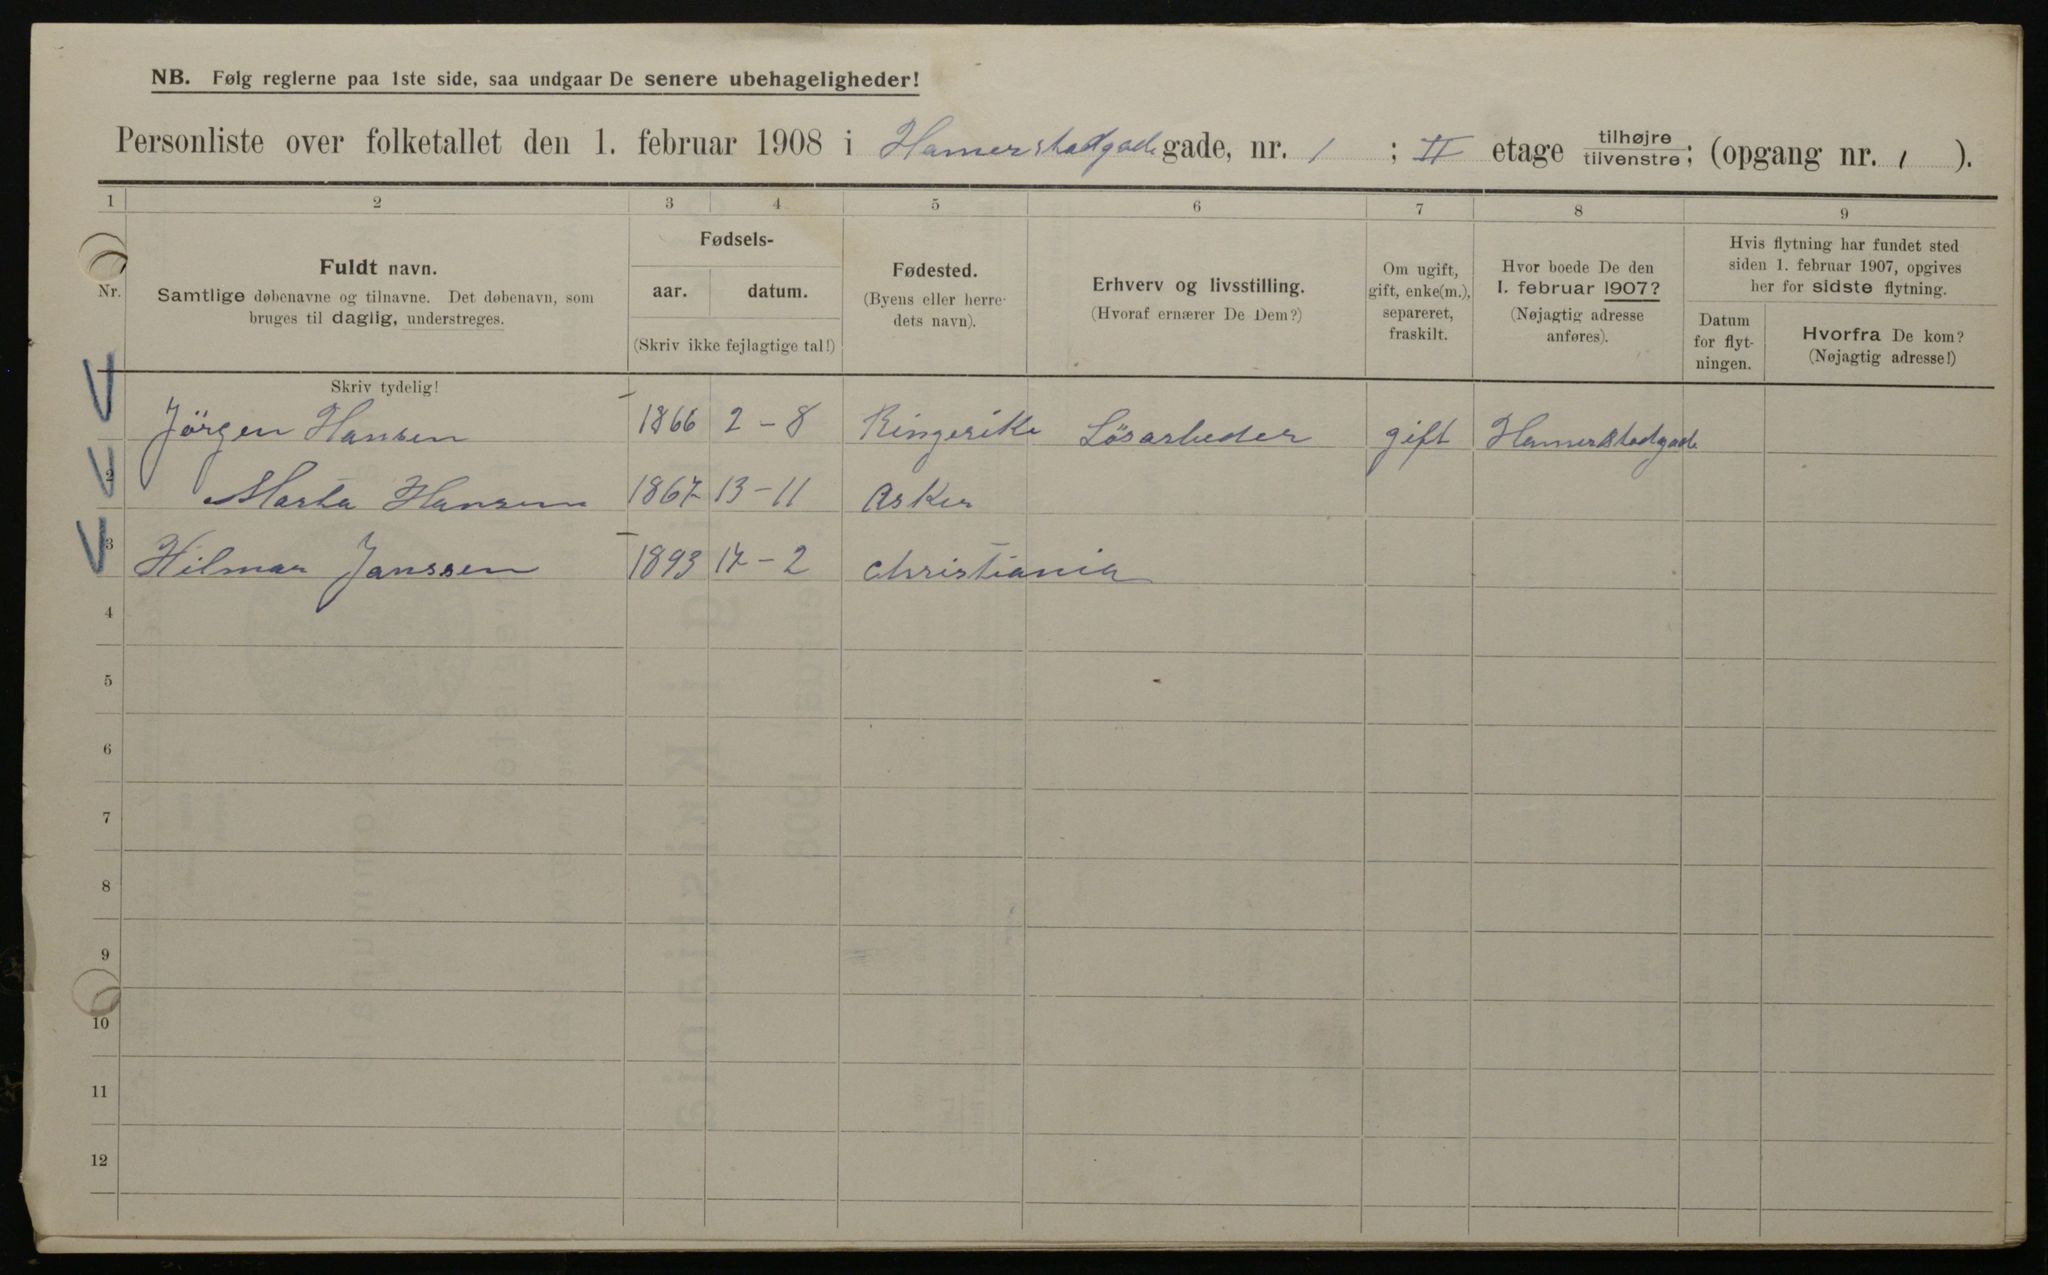 NB. Følg reglerne paa 1ste side, saa undgaar De senere ubehageligheder!
Personliste over folketallet den 1. februar 1908 i Hamerstadgade gade, nr. 1 ; II etage tilhøjre/tilvenstre; (opgang nr. 1 ).
1 2 3 4 5 6 7 8 9
Nr.
Fuldt navn.
Samtlige døbenavne og tilnavne. Det døbenavn, som
bruges til daglig, understreges.
Skriv tydelig!
Fødsels-
aar. datum.
(Skriv ikke fejlagtige tal!)
Fødested.
(Byens eller herre-
dets navn).
Erhverv og livsstilling.
(Hvoraf ernærer De Dem?)
Om ugift,
gift, enke(m.),
separeret,
fraskilt.
Hvor boede De den
1. februar 1907?
(Nøjagtig adresse
anføres).
Hvis flytning har fundet sted
siden 1. februar 1907, opgives
her for sidste flytning.
Datum
for flyt-
ningen.
Hvorfra De kom?
(Nøjagtig adresse!)
Jörgen Hansen 1866 2-8 Ringerike Lösarbeder gift Hamerstadgade
2 Marta Hansen 1867 13-11 Asker
3 Hilmar Janssen 1893 17-2 Christiania
4
5
6
7
8
9
10
11
12